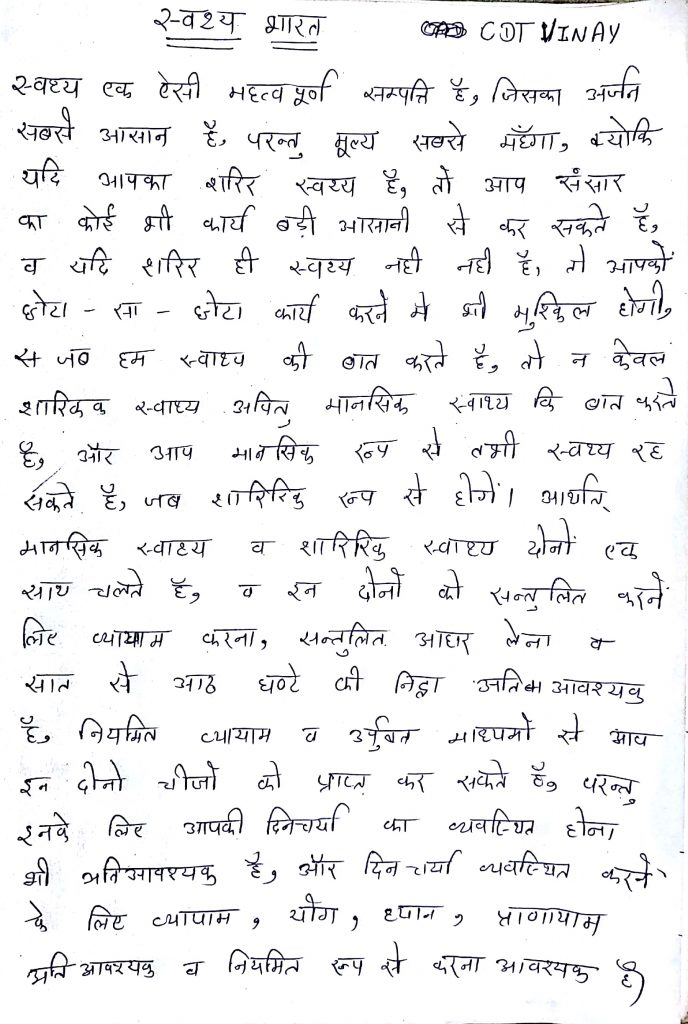 स्वथ्य भारत CDT VINAY
स्वथ्य एक ऐसी महत्वपूर्ण सम्पत्ति है, जिसका अर्जन
सबसे आसान है, परन्तु मूल्य सबसे मँहँगा, क्योकि
यदि आपका शरिर स्वथ्य है, तो आप संसार
का कोई भी कार्य बड़ी आसानी से कर सकते है,
व यदि शरिर ही स्वथ्य नही नही है, तो आपकों
छोटा - सा - छोटा कार्य करनें मे भी मुश्किल होगी,
जब हम स्वाथ्य की बात करते है, तो न केवल
शारिकिक स्वाथ्य अपितु मानसिक स्वाथ्य कि बात करते
है, और आप मानसिक रूप से तभी स्वथ्य रह
सकते है, जब शारिरिक रूप से होगें। आर्थात्
मानसिक स्वाथ्य व शारिरिक स्वाथ्य दोनों एक
साथ चलते है, व इन दोनों को सन्तुलित करनें
लिए व्यायाम करना, सन्तुलित आहार लेना व
सात से आठ घण्टे की निद्रा अतिआवश्यक
है, नियमित व्यायाम व उर्पुक्त माध्यमों से आप
इन दोनो चीजों को प्राप्त कर सकते है, परन्तु
इनके लिए आपकी दिनचर्या का व्यवस्थित होना
भी अतिआवश्यक है, और दिनचर्या व्यवस्थित करनें
के लिए व्यायाम, योग, ध्यान, प्राणायाम
अति आवश्यक व नियमित रूप से करना आवश्यक है